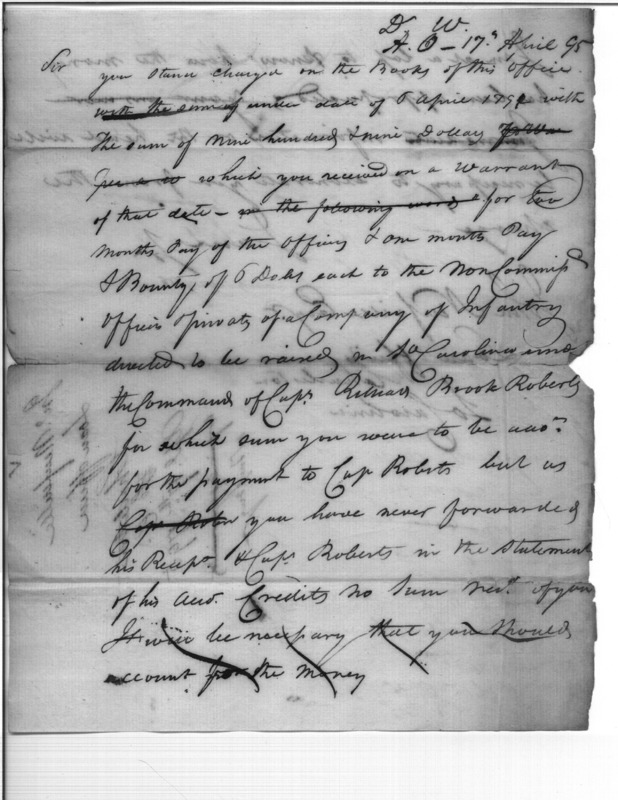 D. W.
A. O - 17th April 95
Sir
you stand charged on the Books of this office
with the sum of under date of 6 April 1792 with
The sum of nine hundred & nine Dollars
which you received on a Warrant
of that date - in the following words for two
months Pay of the officers & one months Pay
& Bounty of 6 Dolls each to the Non Commissd
officers & privates of a Company of Infantry
directed to be raised in So Carolina under
the Command of Capt Richard Brook Roberts
for which sum you were to be acct
for the payment to Cap Roberts but as
Capt Robr you have never forwarded
his Recpt & Capt Roberts in the Statement
of his acct. Credits no Sum recd. of you
It will be necessary that you should
account for the money